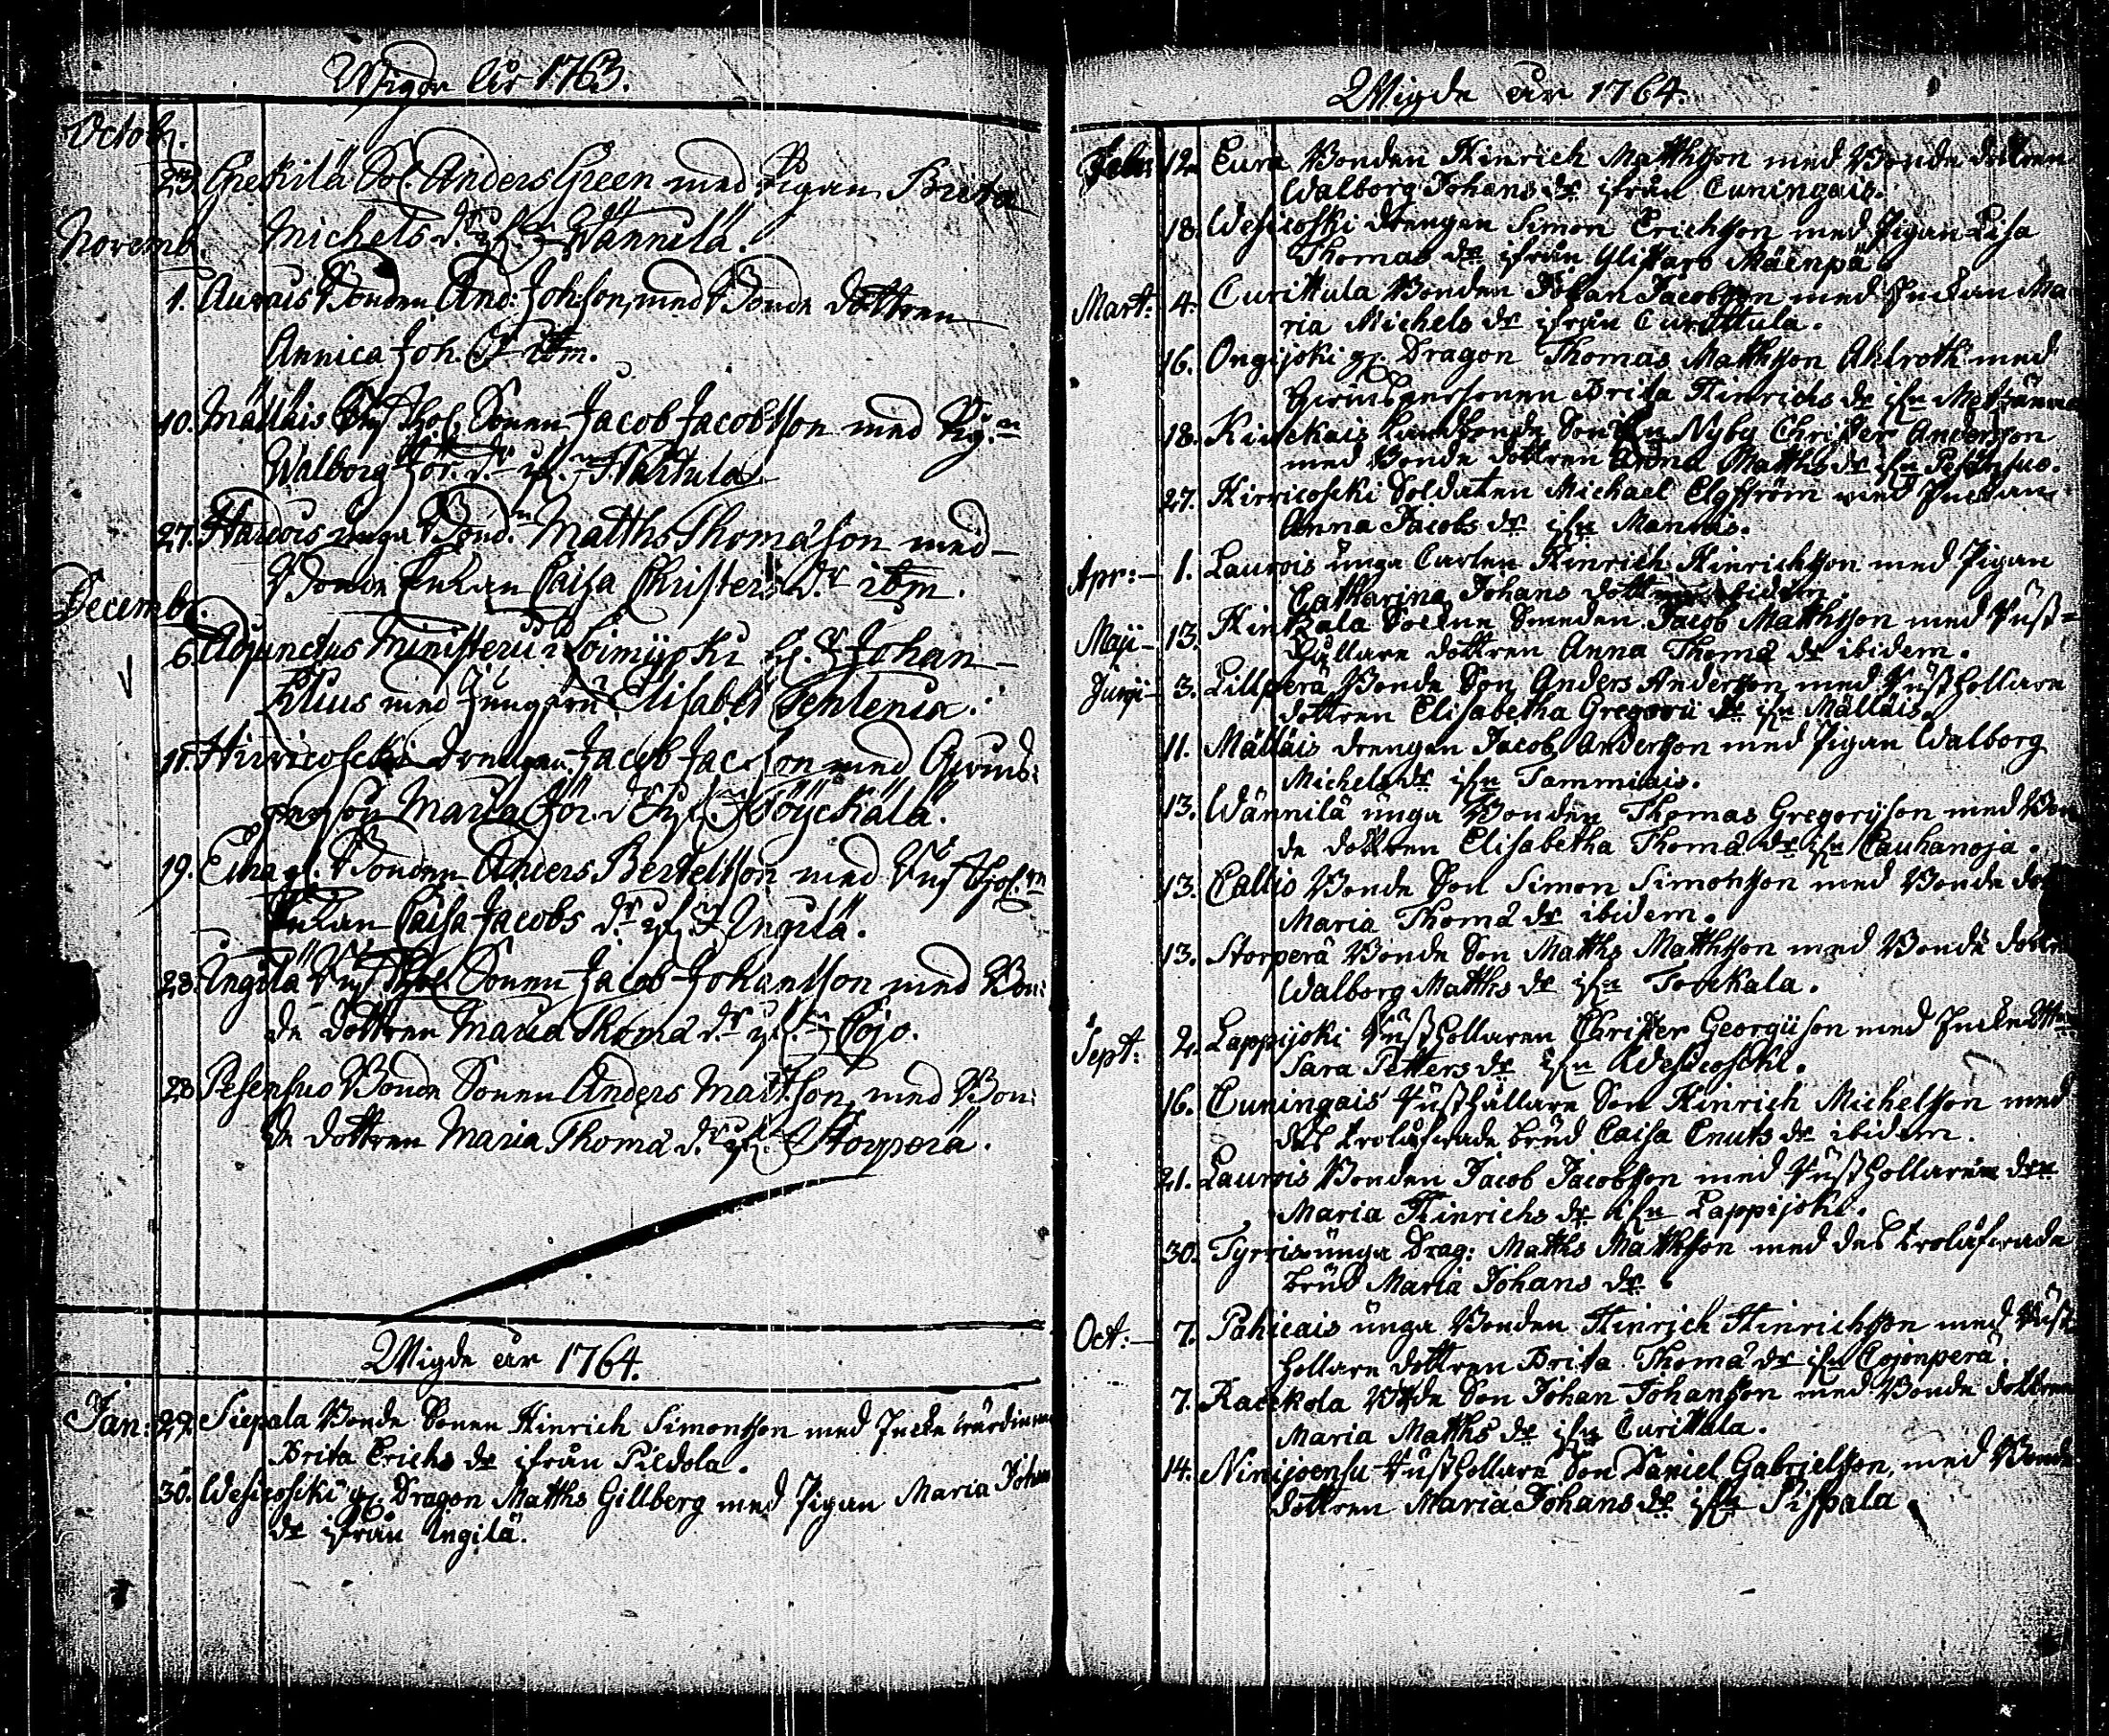 Wigde åhr 1763.
Octob.
23. Grekilä Sol. Anders Green med Pigan Brita
Michels dr ifrn Wännilä.
Novemb.
1. Aurais Bonden And: Joh:son, med Bonde dottren
Annica Joh. dr ibm.
10. Mälläis Rusthol. Sonen Jacob Jacobsson med Pig:n
Walborg Jör. dr ifrn Hartula
27. Haurois unga Bond:n Matths Thomasson med
Bonde Enkan Caisa Christers dr ibm.
Decemb.
6. Adjunctus Ministerii i Loimijoki H. Johan
Filius med Jungfru Elisabet Tehlenia.
11. Hirvicoscki drengen Jacob Jacsson med Qvins:
person Maria Jör. dr ifrn Höyckälä.
19. Eura gl. Bonden Anders Bertelsson med Rusthol:n
Enkan Caisa Jacobs dr ifrn Ingilä.
28. Ingilä Rusthol. Sonen Jacob Johansson med Bon:
de dottren Maria Thoma dr ifrn Cojo.
28. Pesensuo Bonde Sonen Anders Mattson, med Bon:
de dottren Maria Thoma dr ifrn Storperä.
Wigde år 1764.
Jan: 29. Siepala Bonde Sonen Hinrich Simonsson med Encke wärdinnan
Brita Erichs dr ifrån Pildola.
30. Wesicoscki gl. Dragon Matths Gillberg med Pigan Maria Johans
dr ifrån Ingilä.
Wigde år 1764.
Febr: 12. Eura Bonden Hinrich Matthsson med Bonde dottren
Walborg Johans dr ifrån Cuningais.
18. Wesicoski drengen Simon Erichsson med Pigan Lisa
Thomas dr ifrån Ylistaro Mäenpä.
Mart: 4. Curittula Bonden Johan Jacobsson med Enckan Ma
ria Michels dr ifrån Curittula.
16. Ongijoki gl. Dragon Thomas Matthsson Ahlroth med
Qvinspersonen Brita Hinrichs dr ifrn
18. Kinckais Landbonde Son ifrn Nyby Christer Andersson
med Bonde dottren Anna Matths dr ifrn Pesensuo.
27. Hirvicoscki Soldaten Michael Elgström med Enckan
Anna Jacobs dr ifrn Mannis.
Apr: 1. Laurois unga Carlen Hinrich Hinrichsson med Pigan
Catharina Johans dotter ibidem.
Maji 13. Sockne Smeden Jacob Matthsson med Rust=
hållare dottren Anna Thoma dr ibidem.
Junji 3. Lillperä Bonde Son Anders Andersson med Rusthollare
dottren Elisabetha Gregorii dr ifrn Mälläis.
11. Mälläis drengen Jacob Andersson med Pigan Walborg
Michels dr ifrn Tammiais.
13. Wännilä unga Bonden Thomas Gregoryson med Bon
de dottren Elisabetha Thoma dr ifrn Cauhanoja.
13. Callio Bonde Son Simon Simonsson med Bonde dot
Maria Thoma dr ibidem.
13. Storperä Bonde Son Matths Matthsson med Bonde dottren
Walborg Matths dr ifrn Torckala.
Sept: 2. Lappijoki Rusthollaren Christer Georgiison med Encke
Sara Petters dr ifrn Wesicoscki.
16. Cuningais Rusthållare Son Hinrich Michelsson med
dess trolåfwade brud Caisa Cnuts dr ibidem.
21. Laurois Bonden Jacob Jacobsson med Rusthollaren drn
Maria Hinrichs dr ifrn Lappijoki.
30. Tyrris unga Drag: Matths Matthsson med dess trolåfwade
brud Maria Johans dr.
Oct: 7. Pahicais unga Bonden Hinrich Hinrichsson med Rust
hollare dottren Brita Thoma dr ifrn Cojonperä.
7. Raeckola Bonde Son Johan Johansson med Bonde dottren
Maria Matths dr ifrn Curittula.
14. Ninijoensu Rusthollare Son Daniel Gabrielsson, med Bonde
dottren Maria Johans dr ifrn Pispala.